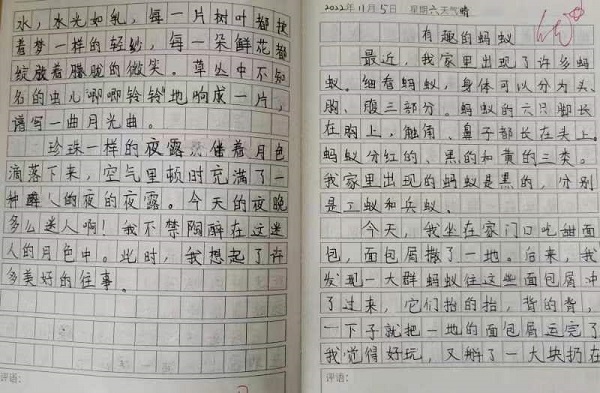 水，水光如乳，每一片树叶都披
着梦一样的轻纱，每一朵鲜花都
绽放着朦胧的微笑。草丛中不知
名的虫儿“唧唧铃铃”地响成一片，
谱写一曲月光曲。
珍珠一样的夜露，伴着月色
滴落下来，空气里顿时充满了一
种醉人的夜的夜露。今天的夜晚
多么迷人啊！我不禁陶醉在这迷
人的月色中。此时，我想起了许
多美好的往事。
评语：
2022年11月5日 星期六天气晴
有趣的蚂蚁
最近，我家里出现了许多蚂
蚁。细看蚂蚁，身体可以分为头、
胸、腹三部分。蚂蚁的六只脚长
在胸上，触角、鼻子都长在头上。
蚂蚁分红的、黑的和黄的三类。
我家里出现的蚂蚁是黑的，分别
是工蚁和兵蚁。
今天，我坐在家门口吃甜面
包，面包屑撒了一地。后来，我
发现一大群蚂蚁往这些面包屑冲
了过来，它们抬的抬，背的背，
一下子就把一地的面包屑运完了
我觉得好玩，又掰了一大块扔在
评语：